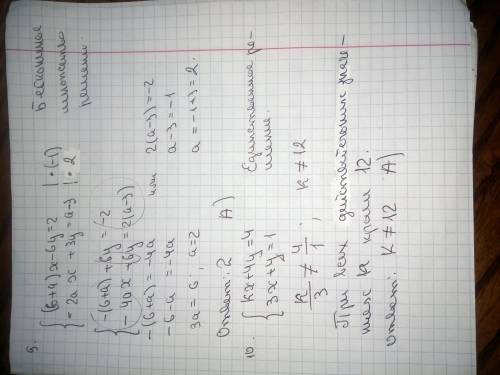 9. { (6+a)x-6y=2 | • (-1)
-2ax+3y=a-3 | • 2
Бесконечное
множество
решений.
{ -(6+a)+6y=-2
-4ax+6y=2(a-3)
-(6+a)=-4a или 2(a-3)=-2
-6-a=-4a a-3=-1
3a=6; a=2 a=-1+3=2.
Ответ: 2 A)
10. { kx+4y=4
3x+y=1
Единственное ре-
шение.
k/3 ≠ 4/1; k≠12
При всех действительных значе-
ниях k кроме 12.
Ответ: k≠12 A)